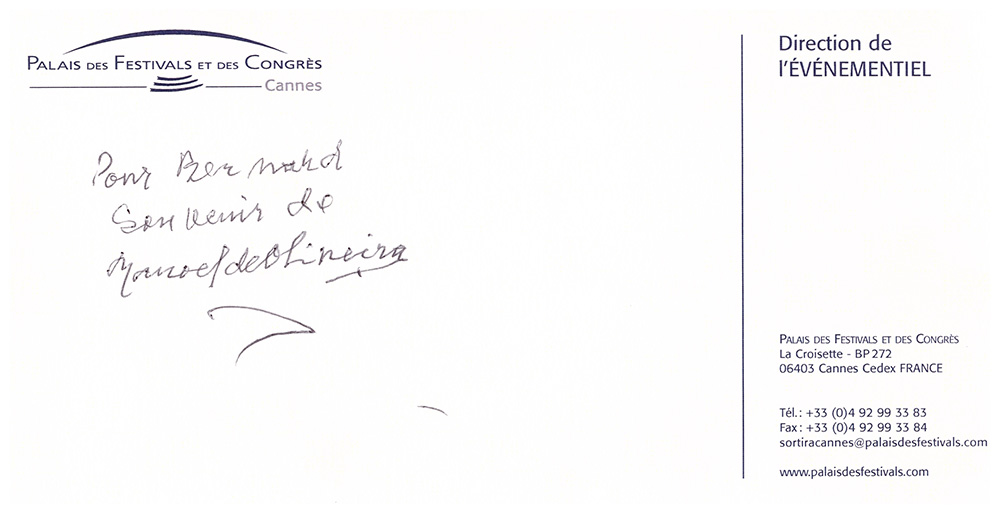 PALAIS DES FESTIVALS ET DES CONGRÈS
Cannes
Pour Bernard
Souvenir de
Manoel de Oliveira
Direction de
l'ÉVÉNEMENTIEL
PALAIS DES FESTIVALS ET DES CONGRÈS
La Croisette - BP 272
06403 Cannes Cedex FRANCE
Tél. : +33 (0)4 92 99 33 83
Fax : +33 (0)4 92 99 33 84
sortiracannes@palaisdesfestivals.com
www.palaisdesfestivals.com